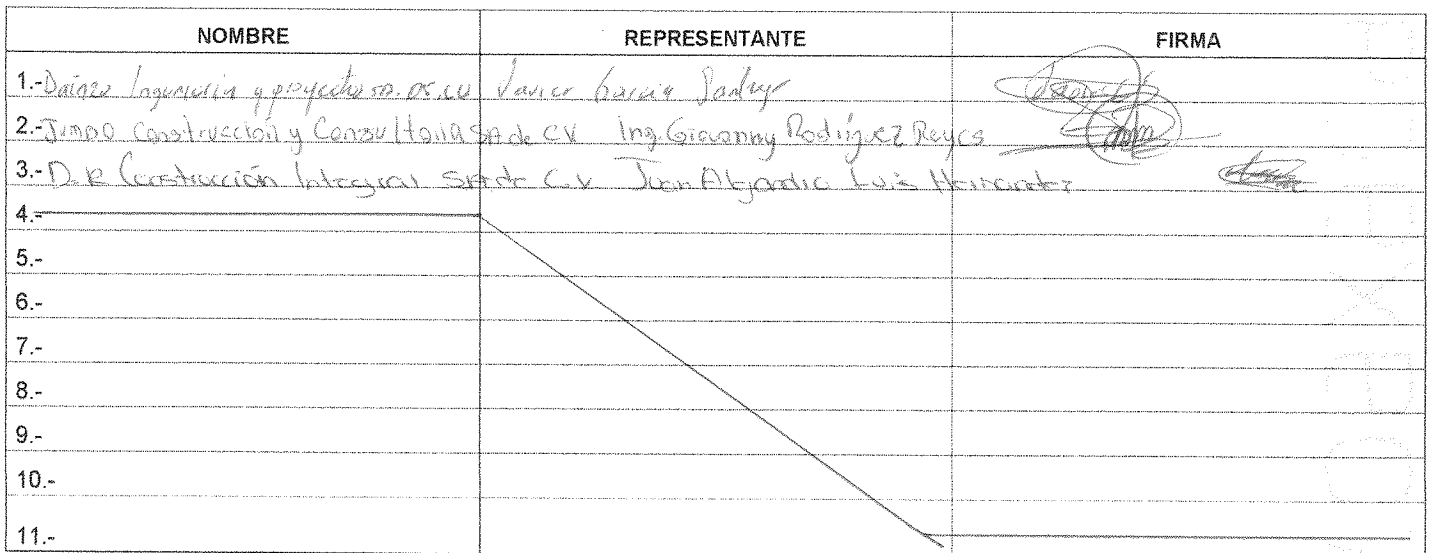 NOMBRE REPRESENTANTE FIRMA
1.- Dainzu Ingeniería y proyectos sa. de cv Javier García
2.- Jumbo Construcción y Consultoria SA de CV Ing. Giovanny Rodríguez Reyes
3.- D.K Construcción Integral SA de C.V Juan Alejandro Luis Hernandez
4.-
5.-
6.-
7.-
8.-
9.-
10.-
11.-